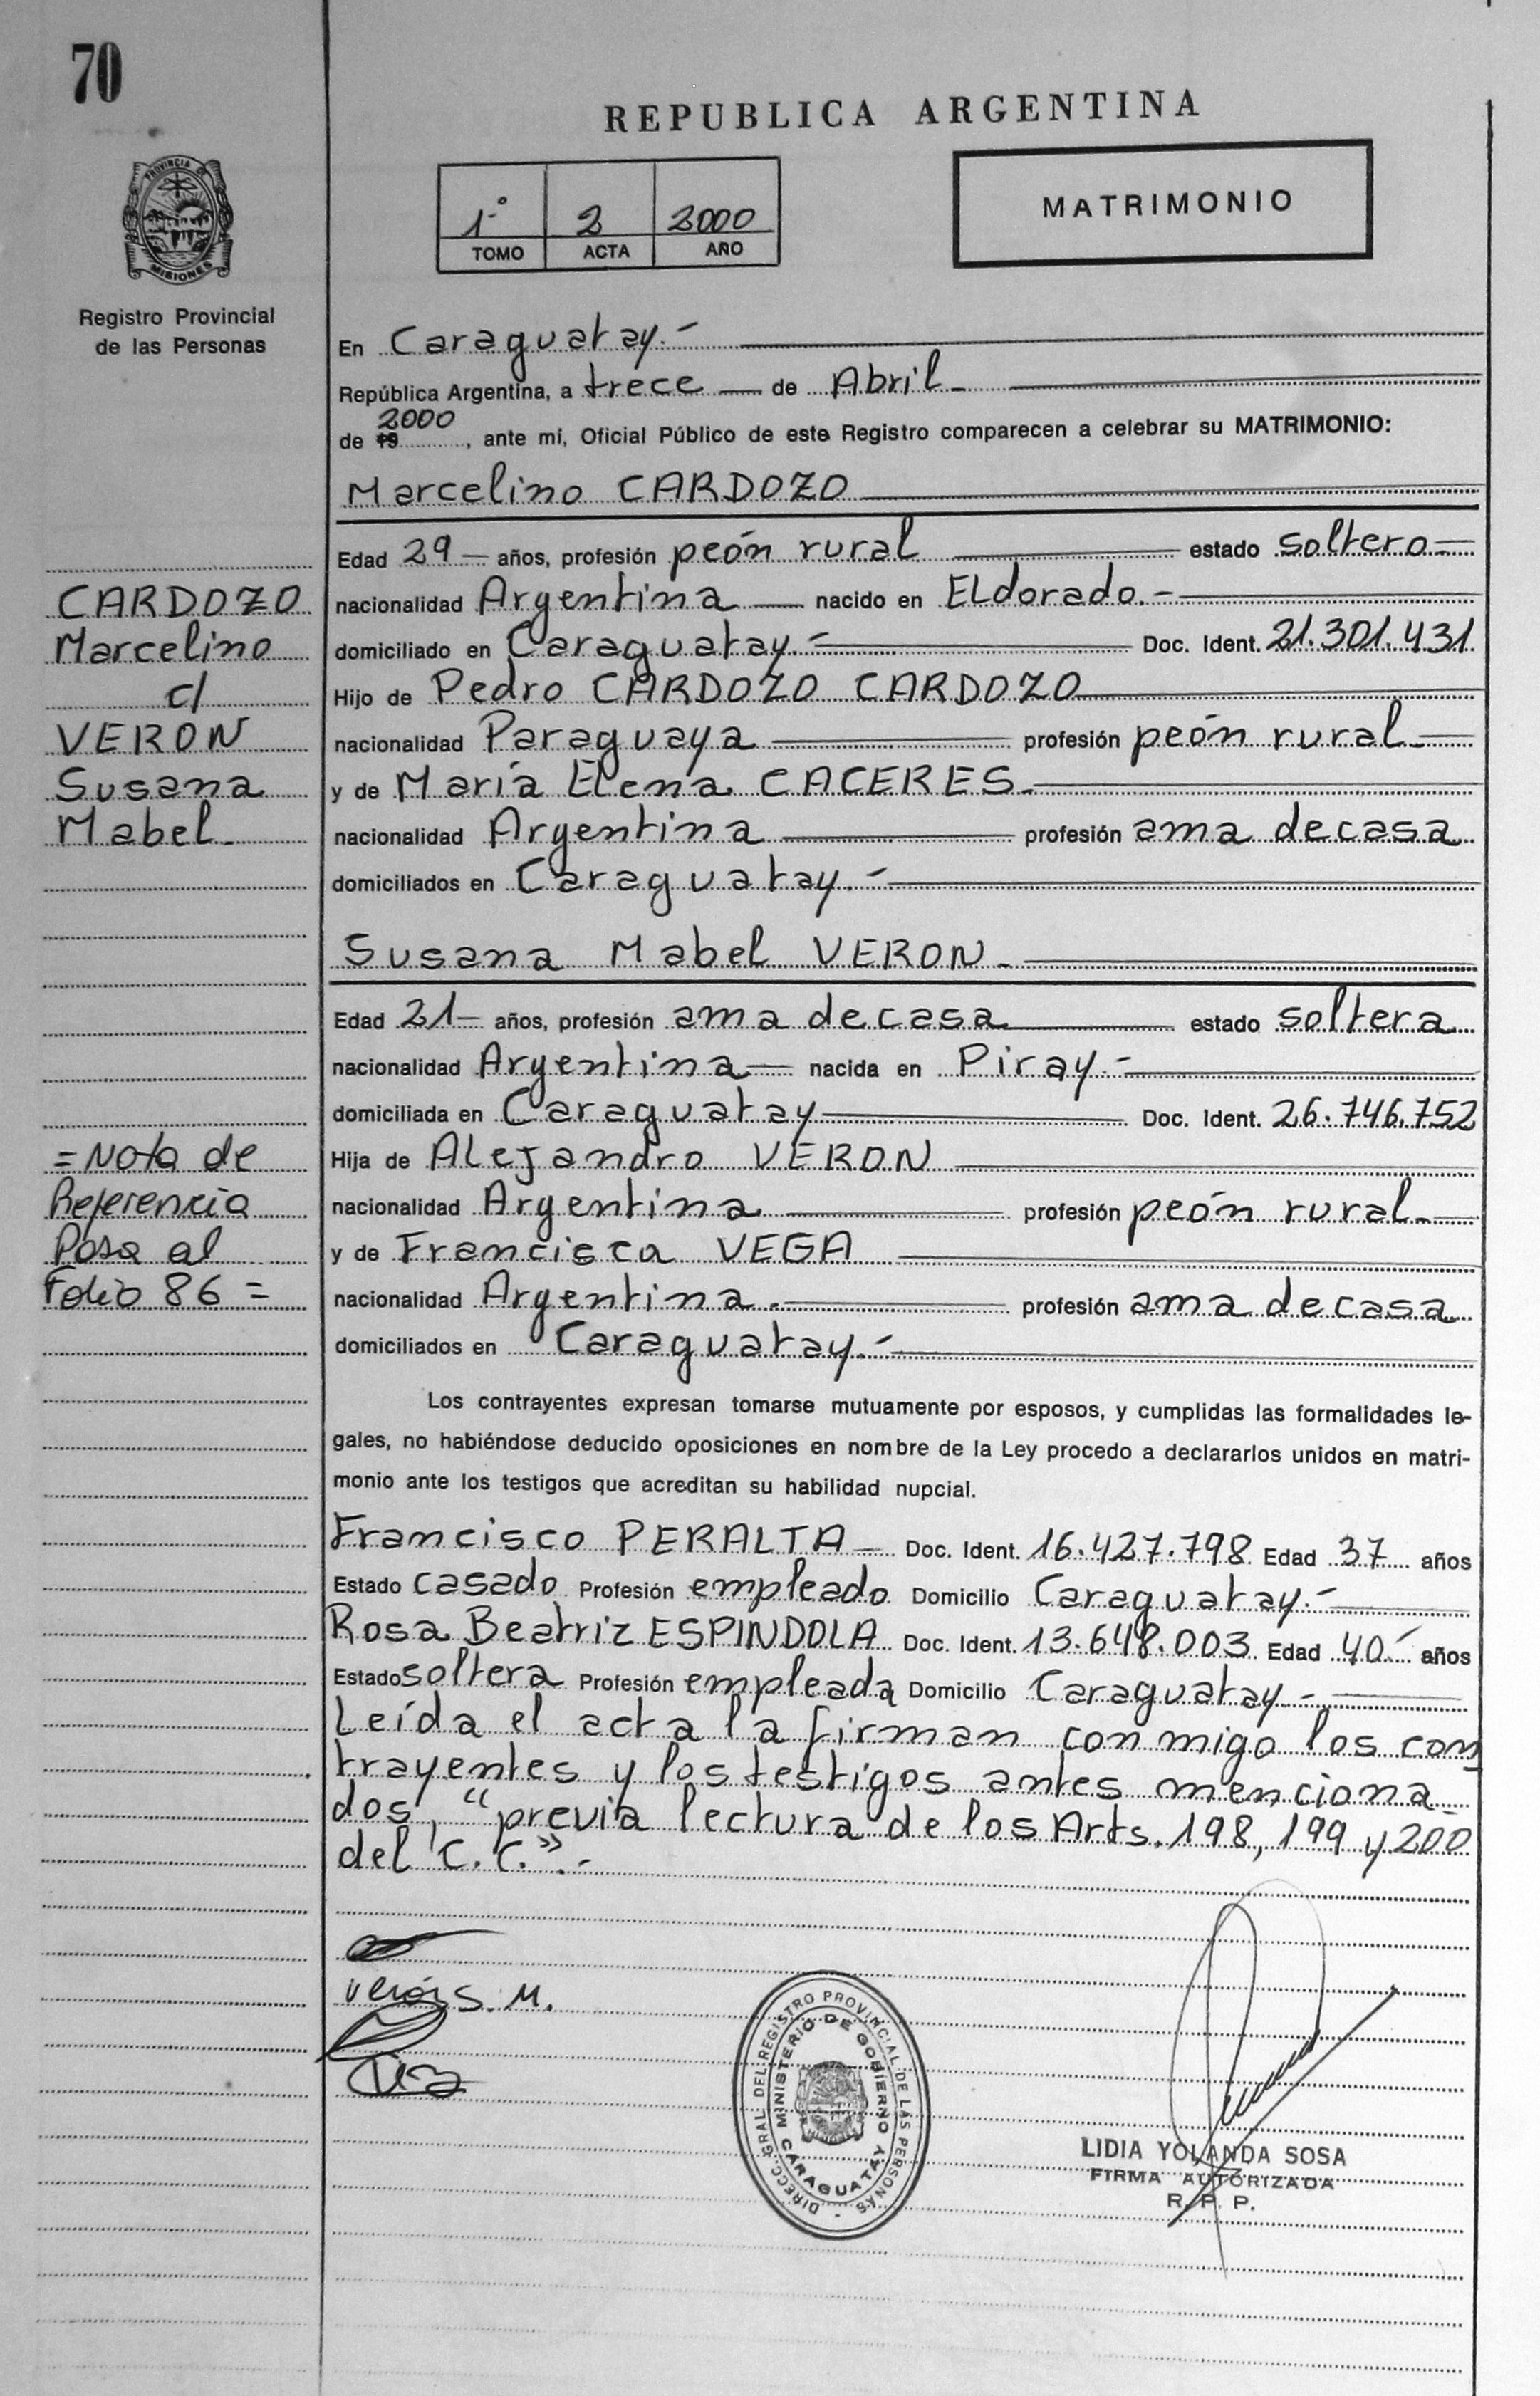 70
REPUBLICA ARGENTINA
PROVINCIA DE
MISIONES
1º 2 2000
TOMO ACTA AÑO
MATRIMONIO
Registro Provincial
de las Personas
En Caraguatay.-
República Argentina, a trece — de Abril -
2000
de 19, ante mí, Oficial Público de este Registro comparecen a celebrar su MATRIMONIO:
Marcelino CARDOZO
Edad 29 — años, profesión peón rural estado soltero
CARDOZO
Marcelino
c/
VERON
Susana
Mabel -
nacionalidad Argentina — nacido en ELdorado.-
domiciliado en Caraguatay.- Doc. Ident. 21.301.431
Hijo de Pedro CARDOZO CARDOZO
nacionalidad Paraguaya profesión peón rural -
y de María Elena CACERES -
nacionalidad Argentina profesión ama de casa
domiciliados en Caraguatay.-
Susana Mabel VERON -
Edad 21 — años, profesión ama de casa estado soltera
nacionalidad Argentina — nacida en Piray.-
domiciliada en Caraguatay Doc. Ident. 26.746.752
Hija de ALejandro VERON
nacionalidad Argentina profesión peón rural -
y de Francisca VEGA
nacionalidad Argentina.- profesión ama de casa
domiciliados en Caraguatay.-
= Nota de
Referencia
Pasa al
Folio 86 =
Los contrayentes expresan tomarse mutuamente por esposos, y cumplidas las formalidades le-
gales, no habiéndose deducido oposiciones en nombre de la Ley procedo a declararlos unidos en matri-
monio ante los testigos que acreditan su habilidad nupcial.
Francisco PERALTA - Doc. Ident. 16.427.798 Edad 37 años
Estado casado Profesión empleado Domicilio Caraguatay.-
Rosa Beatriz ESPINDOLA Doc. Ident. 13.648.003 Edad 40 años
Estado soltera Profesión empleada Domicilio Caraguatay -
Leída el acta la firman conmigo los con
trayentes y los testigos antes menciona-
dos, "previa lectura de los Arts. 198, 199 y 200
del C. C.".-
Verón S. M.
DIRECC. GRAL DEL REGISTRO PROVINCIAL DE LAS PERSONAS
MINISTERIO DE GOBIERNO Y
CARAGUATAY
LIDIA YOLANDA SOSA
FIRMA AUTORIZADA
R. P. P.